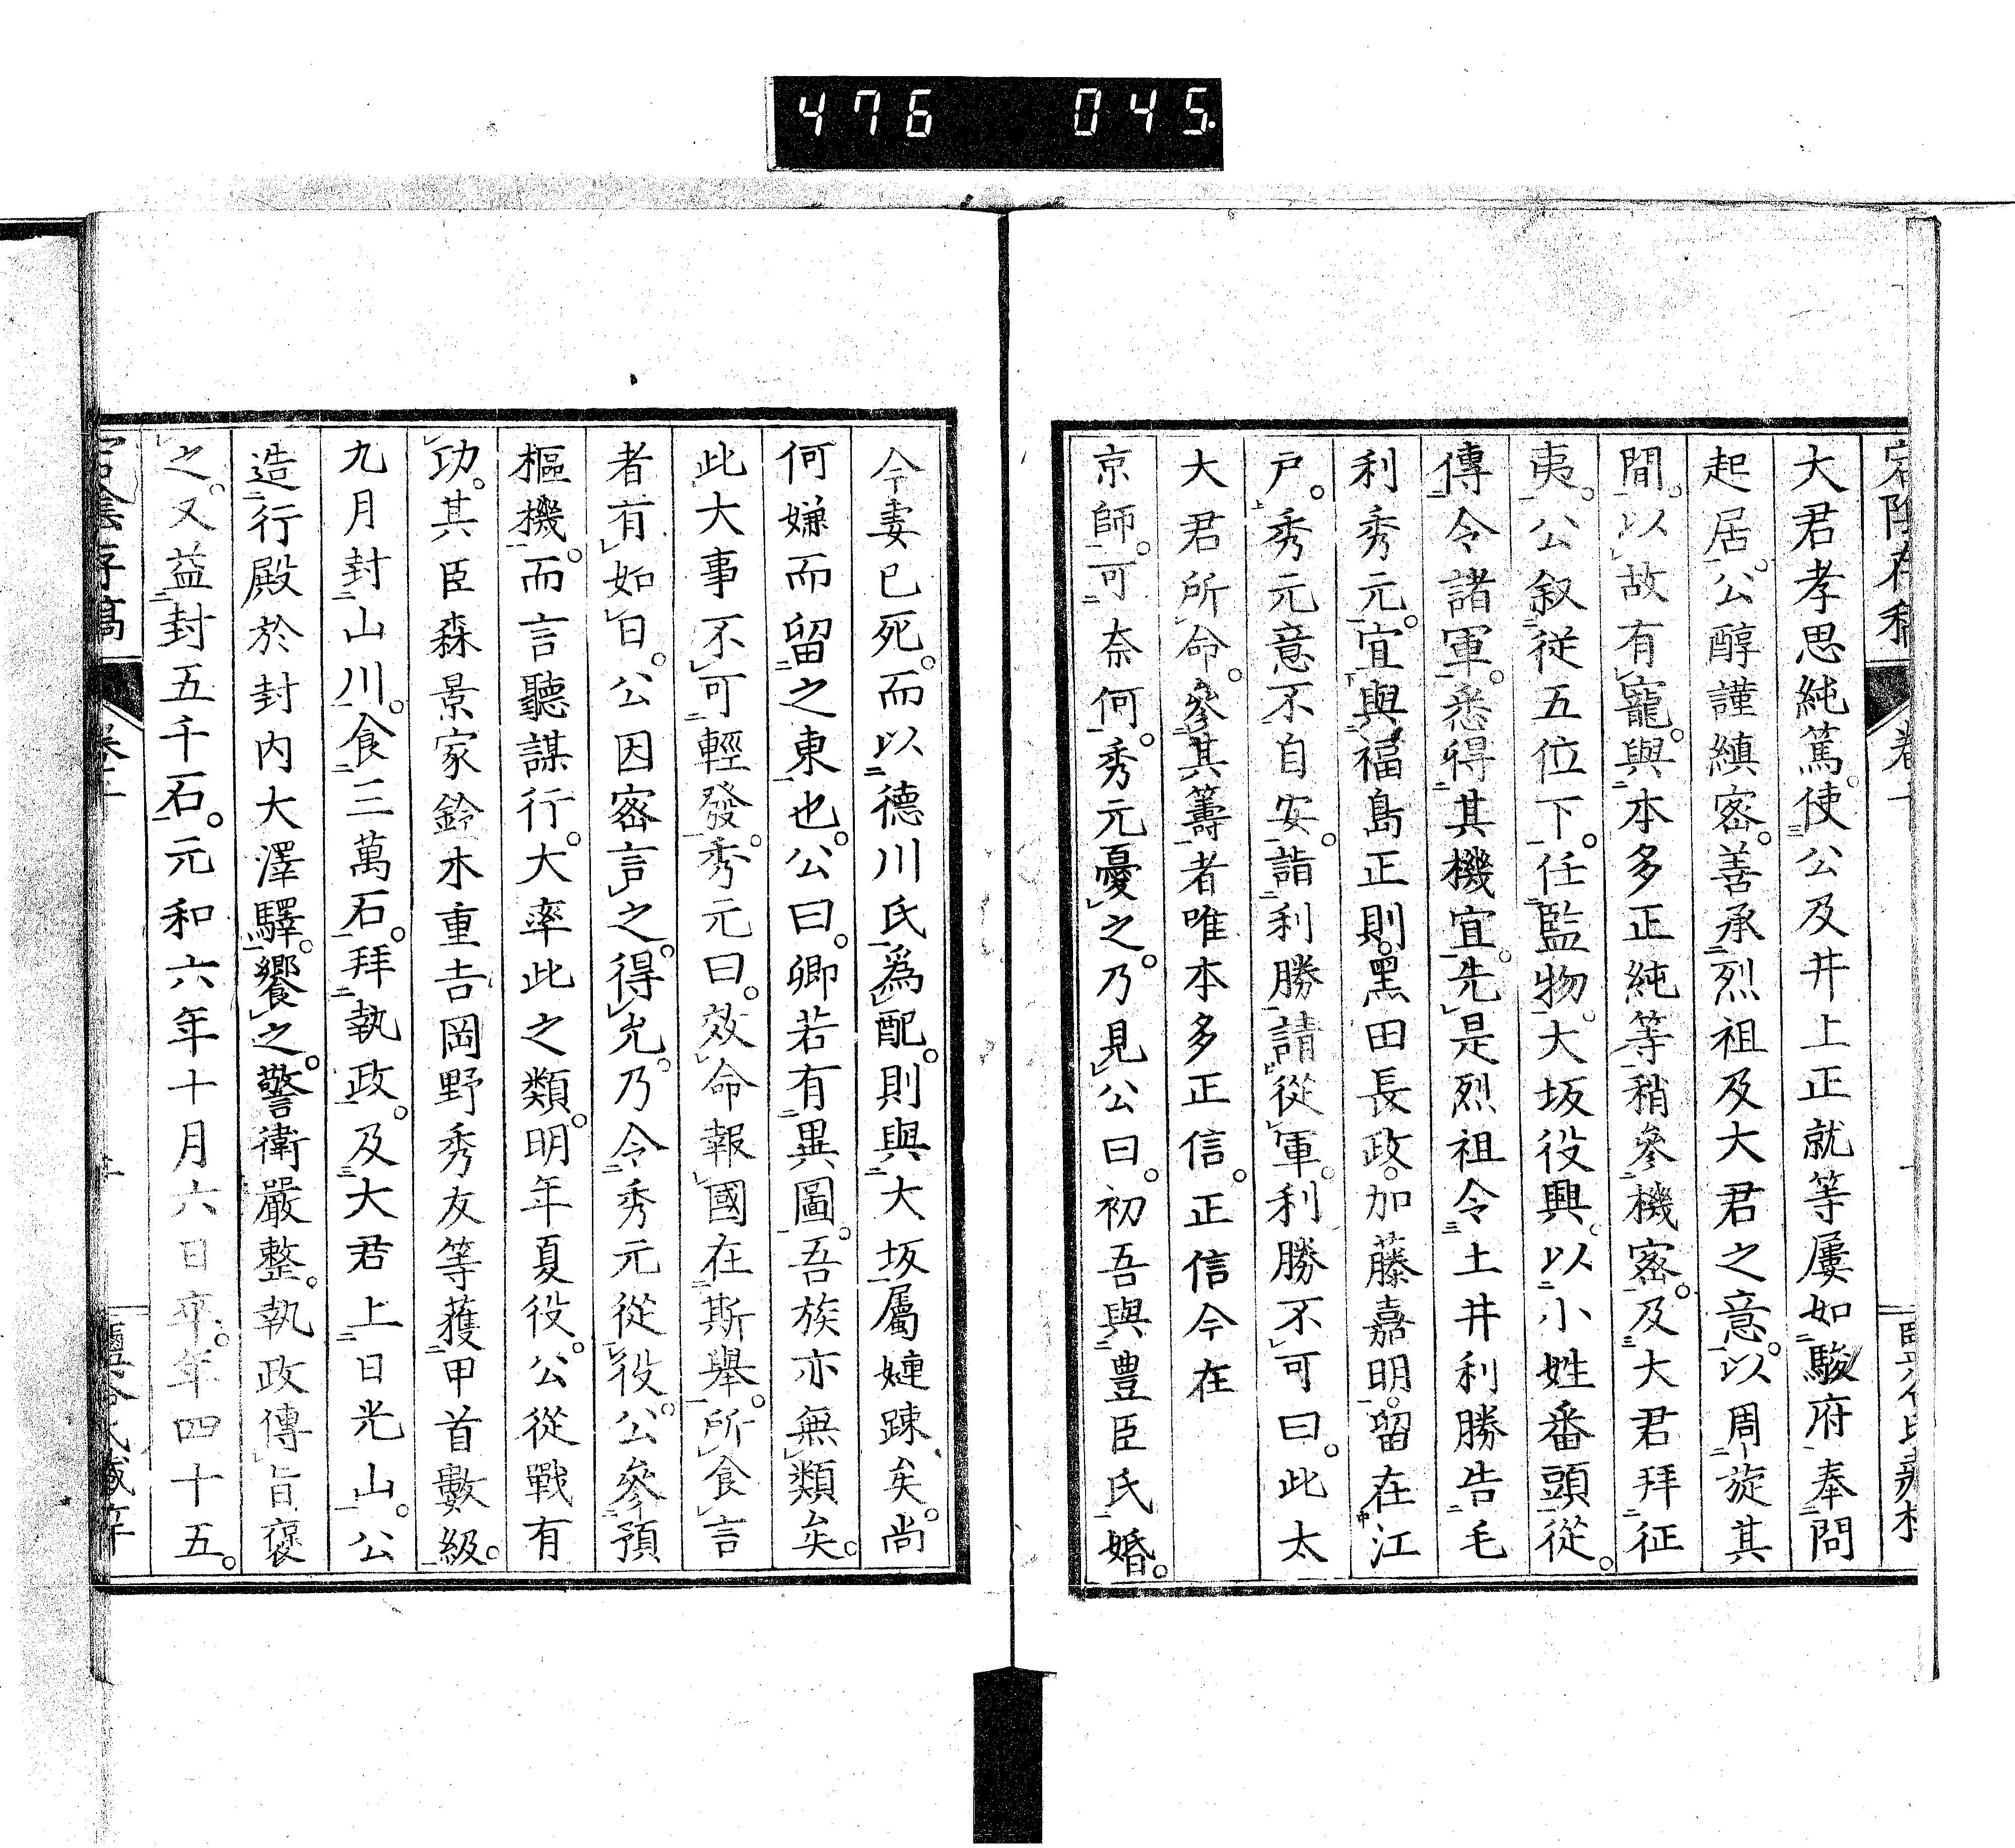 476 045.
大君孝思純篤。使公及井上正就等屢如駿府奉問
起居。公醇謹縝密。善承烈祖及大君之意。以周旋其
間。以故有寵。與本多正純等稍參機密。及大君拜征
夷。公叙從五位下。任監物。大坂役興。以小姓番頭從。
傳令諸軍。悉得其機宜。先是烈祖令土井利勝告毛
利秀元。宜與福島正則。黑田長政。加藤嘉明。留在江
戸。秀元意不自安。詣利勝請從軍。利勝不可曰。此太
大君所命。參其籌者唯本多正信。正信今在
京師。可奈何。秀元憂之。乃見公曰。初吾與豊臣氏婚。
今妻已死。而以德川氏爲配。則與大坂屬婕踈矣。尚
何嫌而留之東也。公曰。卿若有異圖。吾族亦無類矣。
此大事不可輕發。秀元曰。效命報國在斯舉。所食言
者有如日。公因密言之。得允。乃令秀元從役。公參預
樞機。而言聽謀行。大率此之類。明年夏役。公從戰有
功。其臣森景家鈴木重吉岡野秀友等獲甲首數級。
九月封山川。食三萬石。拜執政。及大君上日光山。公
造行殿於封内大澤驛。饗之。警衛嚴整。執政傳旨褒
之。又益封五千石。元和六年十月六日卒。年四十五。